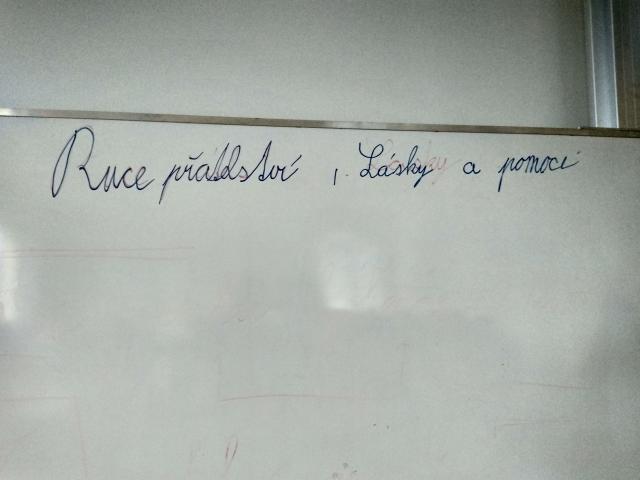 Ruce přátelství, Lásky a pomoci